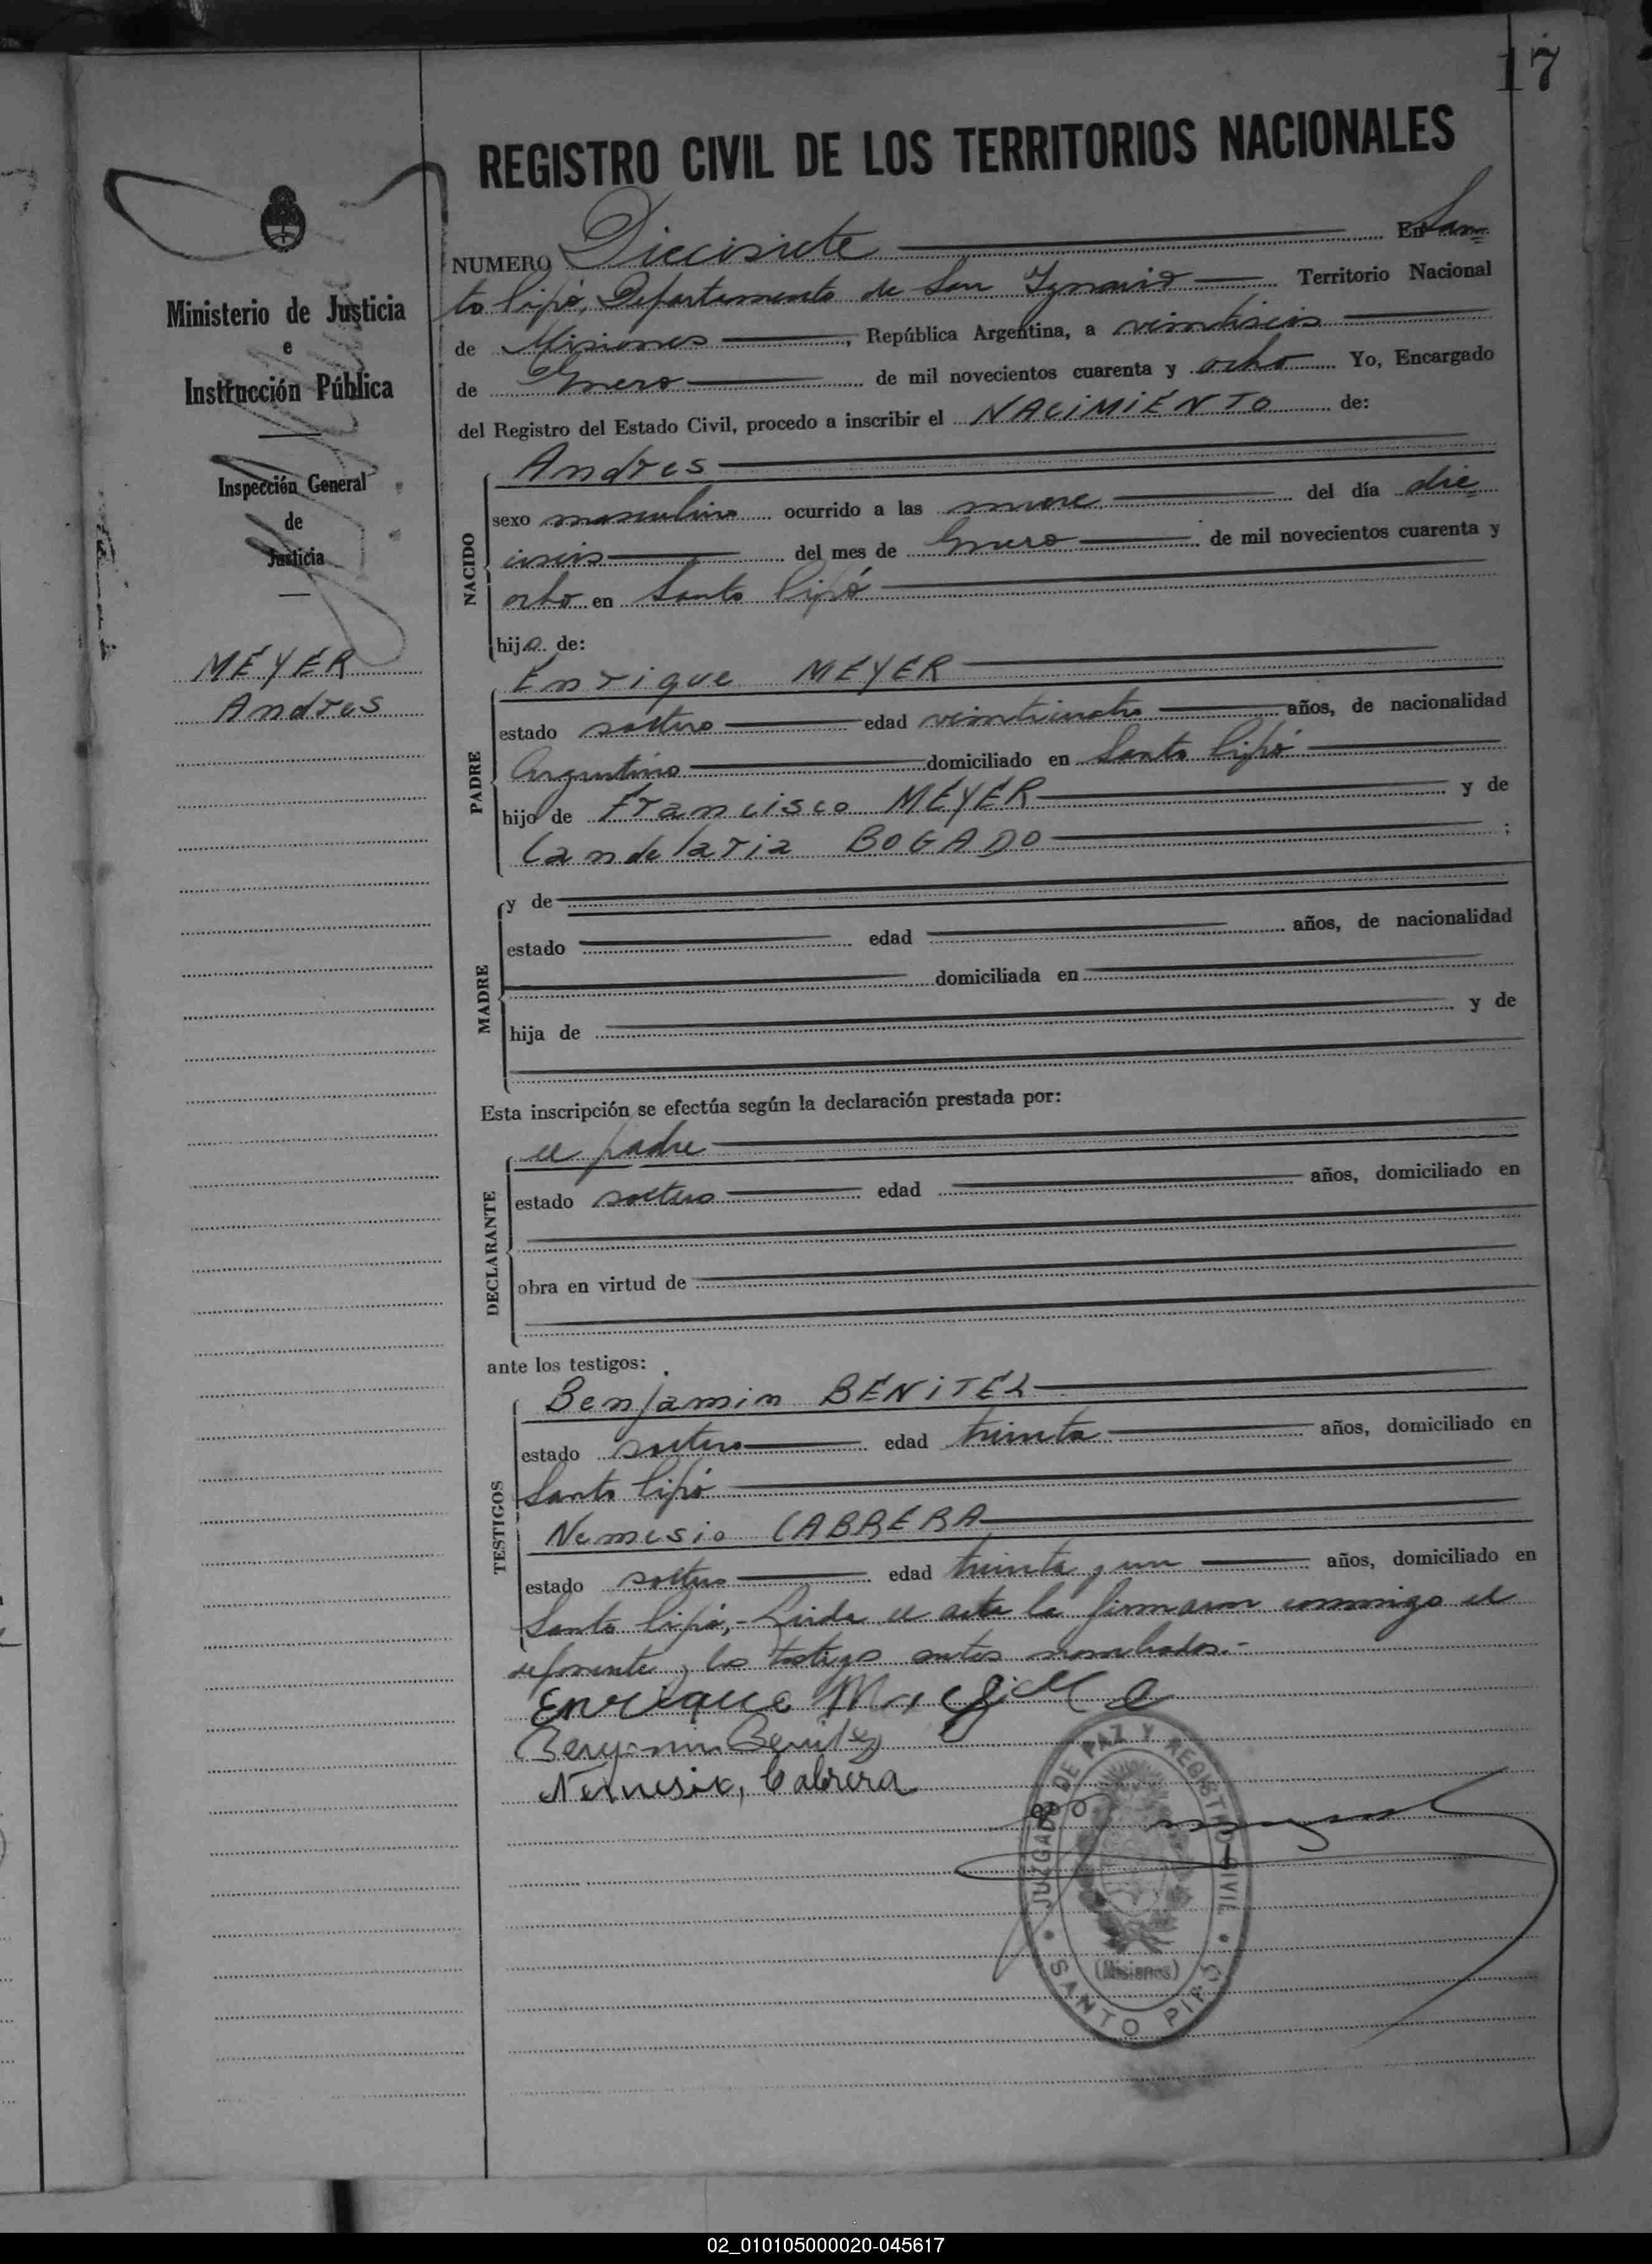 17
REGISTRO CIVIL DE LOS TERRITORIOS NACIONALES
NUMERO Diecisiete En San
to Pipó, Departamento de San Ignacio Territorio Nacional
de Misiones, República Argentina, a veintiseis
de Enero de mil novecientos cuarenta y ocho Yo, Encargado
del Registro del Estado Civil, procedo a inscribir el NACIMIENTO de:
Ministerio de Justicia
e
Instrucción Pública
Inspección General
de
Justicia
MEYER
Andres
NACIDO
Andres
sexo masculino ocurrido a las nueve del día die
ciseis del mes de Enero de mil novecientos cuarenta y
ocho en Santo Pipó
hijo de:
PADRE
Enrique MEYER
estado soltero edad veinticuatro años, de nacionalidad
Argentino domiciliado en Santo Pipó
hijo de Francisco MEYER y de
Candelaria BOGADO ;
MADRE
y de
estado edad años, de nacionalidad
domiciliada en
hija de y de
Esta inscripción se efectúa según la declaración prestada por:
DECLARANTE
el padre
estado soltero edad años, domiciliado en
obra en virtud de
ante los testigos:
TESTIGOS
Benjamin BENITEZ
estado soltero edad treinta años, domiciliado en
Santo Pipó
Nemesio CABRERA
estado soltero edad treinta y un años, domiciliado en
Santo Pipó,- Leida el acta la firmaron conmigo el
deponente y los testigos antes nombrados.-
Enrique
Benjamin Benitez
Nemesio, Cabrera
JUZGADO DE PAZ Y REGISTRO CIVIL
(Misiones)
SANTO PIPO
02_010105000020-045617